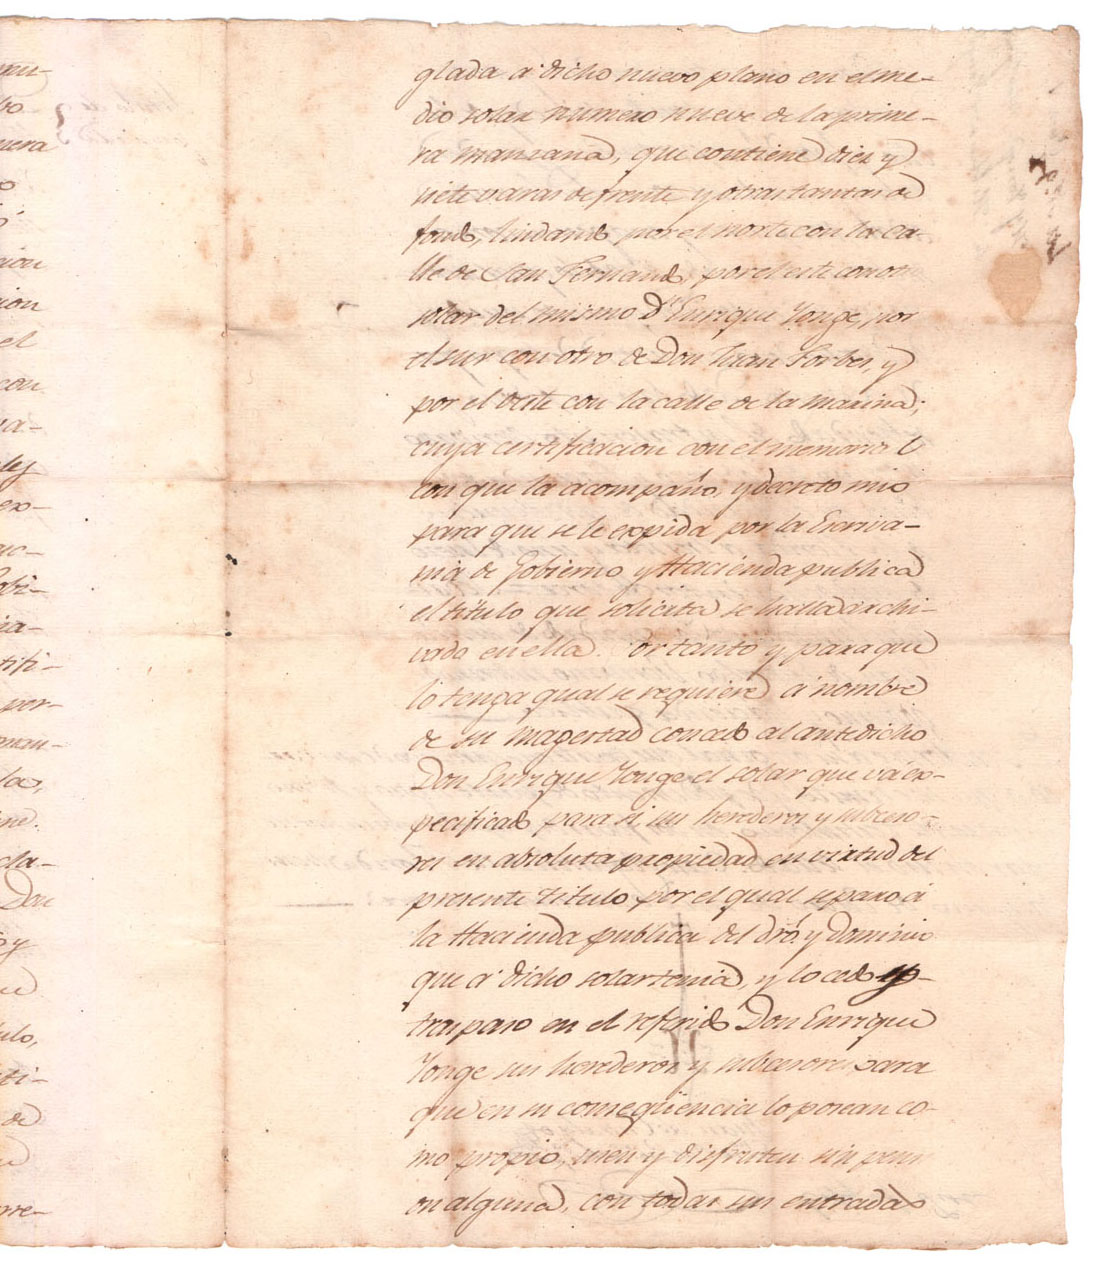 glada á dicho nuevo plano en el me-
dio solar numero nueve de la prime-
ra manzana, que contiene diez y
siete varas de frente y otras tantas de
fondo, lindando por el norte con la ca-
lle de San Fernando por el este con otro
solar del mismo Dn Enrique Yonge, por
el sur con otro de Don Juan Forbes, y
por el oeste con la calle de la marina;
cuya certificacion con el memorial
con que la acompaño, y decreto mio
para que se le expida por la Escriva-
nia de Gobierno y Hacienda publica
el titulo que solicita se halla archi-
vada en ella. Por tanto y para que
lo tenga qual se requiere á nombre
de su magestad concedo al antedicho
Don Enrique Yonge el solar que vá ex-
pecificado para si sus herederos y subceso-
res en absoluta propiedad en virtud del
presente titulo, por el qual separo á
la Hacienda publica del dro. y Dominio
que á dicho solar tenia, y lo cedo y
traspaso en el referido Don Enrique
Yonge sus herederos y subcesores para
que en su conseqüencia lo posean co-
mo propio, usen y disfruten sin pensi
on alguna, con todas sus entradas
mera
cion
sion
el
con
ua-
ex-
ac-
tifi-
per-
la,
cla-
Don
y
de